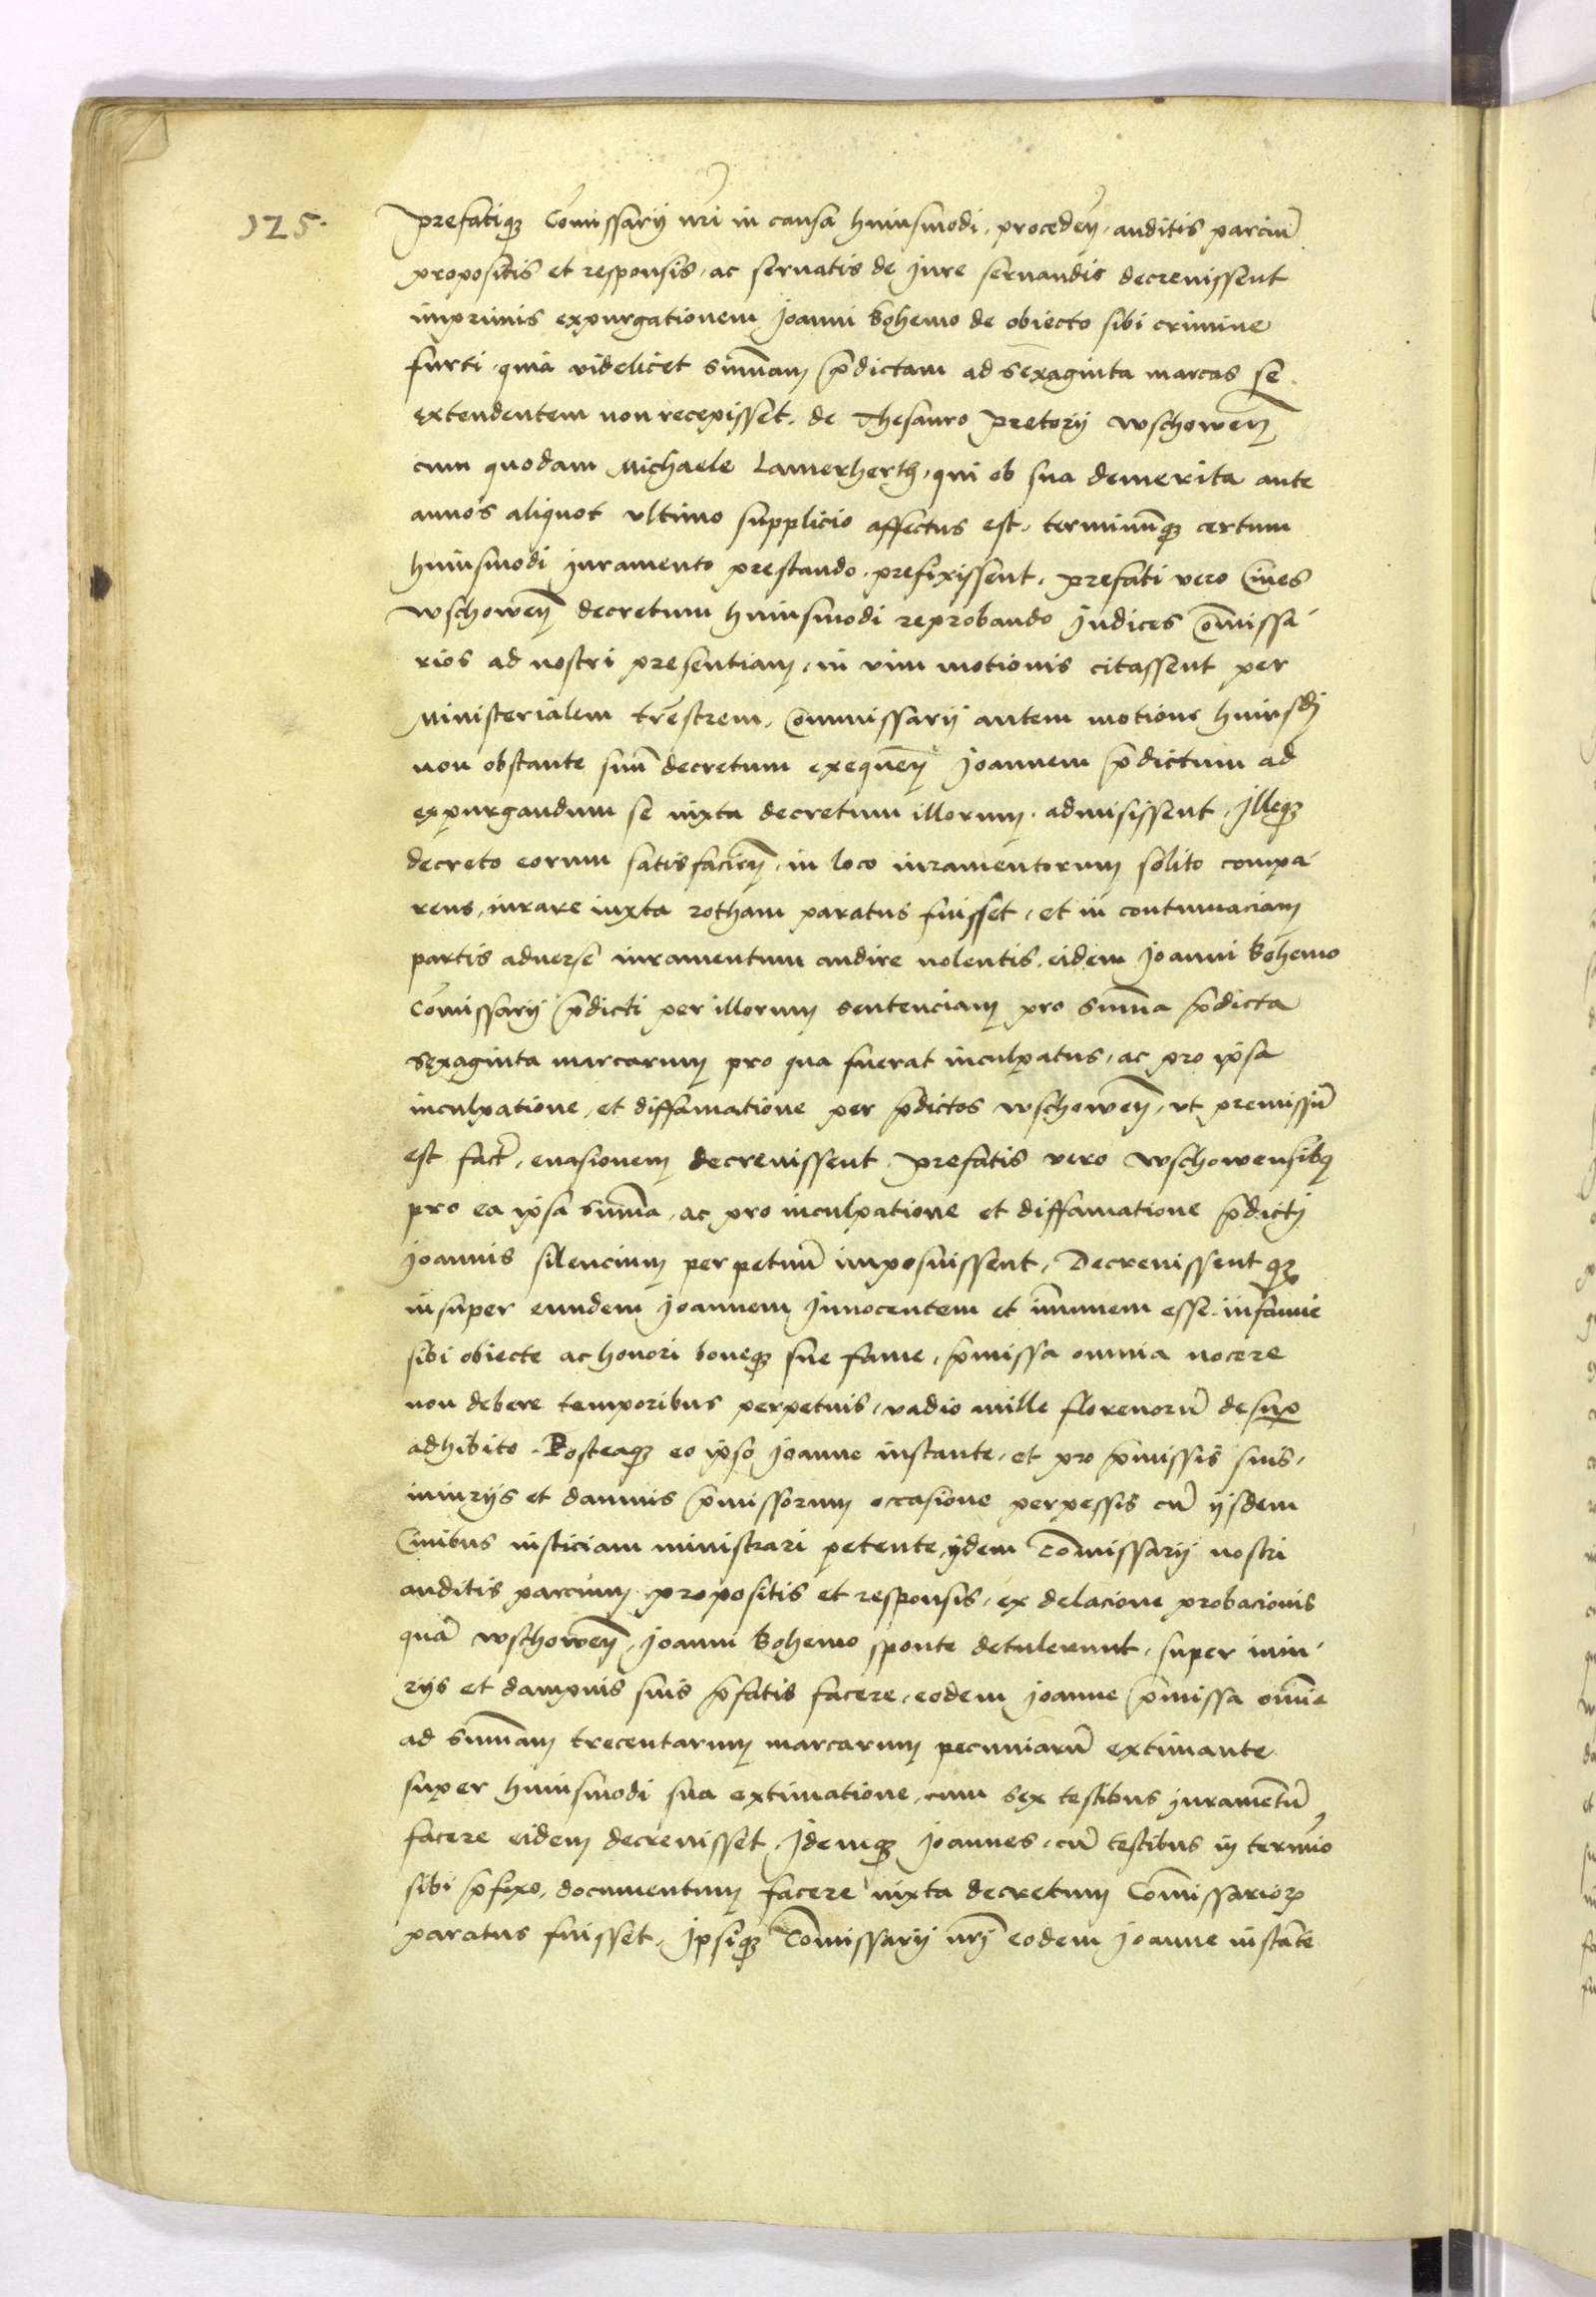 125.
prefatiqꝫ Com̃issarij nr̃i in causa huiusmodi, proceden̄, auditis parciũ
propositis et responsis, ac seruatis de jure seruandis decreuissent
imprimis expurgationem Joanni Bohemo de obiecto sibi crimine
furti, quia videlicet sum̃am p̃dictam ad sexaginta marcas se
extendentem non recepisset, de Thesauro pretorij wschowen̄
cum quodam Michaele Lamerherth, qui ob sua demerita ante
annos aliquot vltimo supplicio affectus est, terminũqꝫ certum
huiusmodi juramento prestando, prefixissent, prefati vero Ciues
wschowen̄ decretum huiusmodi reprobando Judices Com̃issa
rios ad nostri presentiam, in vim motionis citassent per
Ministerialem trẽstrem, Commissarij autem motione huiusdj
non obstante suũ decretum exequen̄ Joannem p̃dictum ad
expurgandum se iuxta decretum illorum, admisissent, Illeqꝫ
decreto eorum satisfacien̄, in loco iuramentorum solito compa
rens, iurare iuxta rotham paratus fuisset, et in contumaciam
partis aduerse iuramentum audire nolentis, eidem Joanni Bohemo
Com̃issarij p̃dicti per illorum sentenciam pro sum̃a p̃dicta
sexaginta marcarum pro qua fuerat inculpatus, ac pro ipsa
inculpatione, et diffamatione per p̃dictos wschowen̄, vt premissũ
est factũ, euasionem decreuissent, prefatis vero wschowensibꝫ
pro ea ipsa sum̃a, ac pro inculpatione et diffamatione p̃dictj
Joannis silencium perpetuũ imposuissent, Decreuissentqꝫ
insuper eundem Joannem Innocentem et im̃unem esse, infamie
sibi obiecte ac honori boneqꝫ sue fame, p̃missa omnia nocere
non debere temporibus perpetuis, vadio mille florenorũ desup̱
adhibito. Posteaqꝫ eo ipso Joanne instante, et pro p̃missis suis,
iniurijs et damnis p̃missorum occasione perpessis cũ ijsdem
Ciuibus iusticiam ministrari petente, ijdem Com̃issarij nostri
auditis parcium propositis et responsis, ex delacione probacionis
quã wschowen̄, Joanni Bohemo sponte detulerunt, super iniu
rijs et dampnis suis p̃fatis facere, eodem Joanne p̃missa om̃ia
ad sum̃am trecentarum marcarum pecuniarũ extimante
super huiusmodi sua extimatione, cum sex testibus juramẽtũ
facere eidem decreuisset, Idemqꝫ Joannes, cũ testibus in termĩo
sibi p̃fixo, documentum facere iuxta decretum Com̃issarioꝝ
paratus fuisset, Ipsiqꝫ Com̃issarij nr̃j eodem Joanne instãte